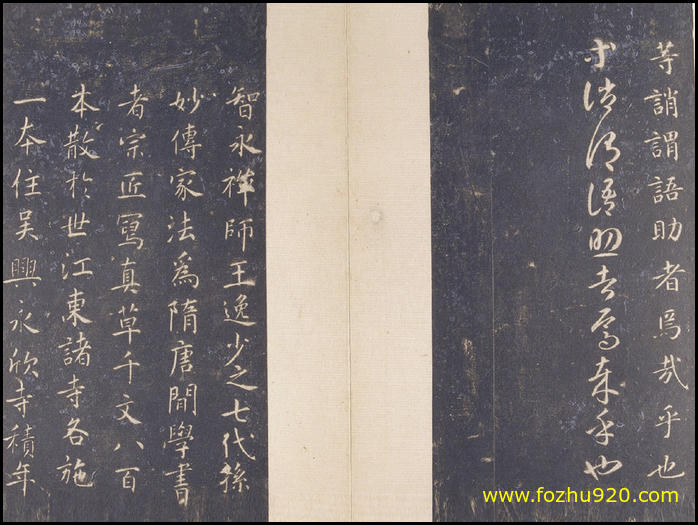 等誚謂語助者焉哉乎也
等誚謂語助者焉哉乎也
智永禅師王逸少之七代孫
妙傳家法爲隋唐間學書
者宗匠寫真草千文八百
本散於世江東諸寺各施
一本住吴興永欣寺積年
www.fozhu920.com